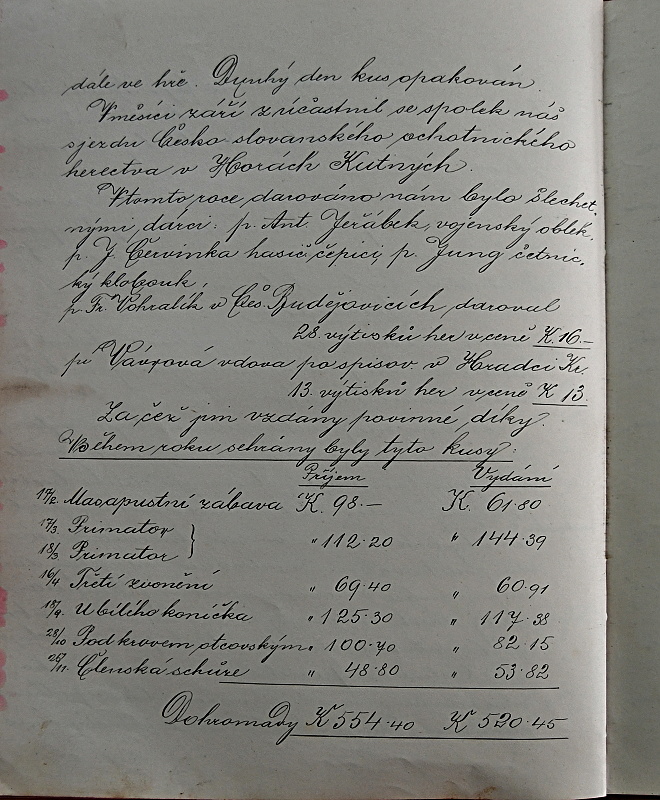 dále ve hře. Druhý den kus opakován.
V měsíci září zúčastnil se spolek náš
sjezdu Česko slovanského ochotnického
herectva v Horách Kutných.
V tomto roce darováno nám bylo šlechet-
nými dárci: p. Ant. Jeřábek, vojenský oblek,
p. J. Červinka hasič. čepici, p. Jung četnic-
ký klobouk,
p. Fr. Vohralík v Čes. Budějovicích daroval
28. výtisků her v ceně K 16.–
pí Vávrová vdova po spisov. v Hradci Kr.
13. výtisků her v ceně K 13.
Za čež jim vzdány povinné díky.
Během roku sehrány byly tyto kusy:
Příjem Vydání
17/2. Masapustní zábava K. 98.– K. 61·80
17/3. Primator } „ 112·20 „ 144·39
18/3 Primator
16/4 Třetí zvonění „ 69·40 „ 60·91
18/9. U bílého koníčka „ 125·30 „ 117·38
28/10 Pod krovem otcovským „ 100·70 „ 82·15
26/11. Členská schůze „ 48·80 „ 53·82
Dohromady K 554·40 K 520·45